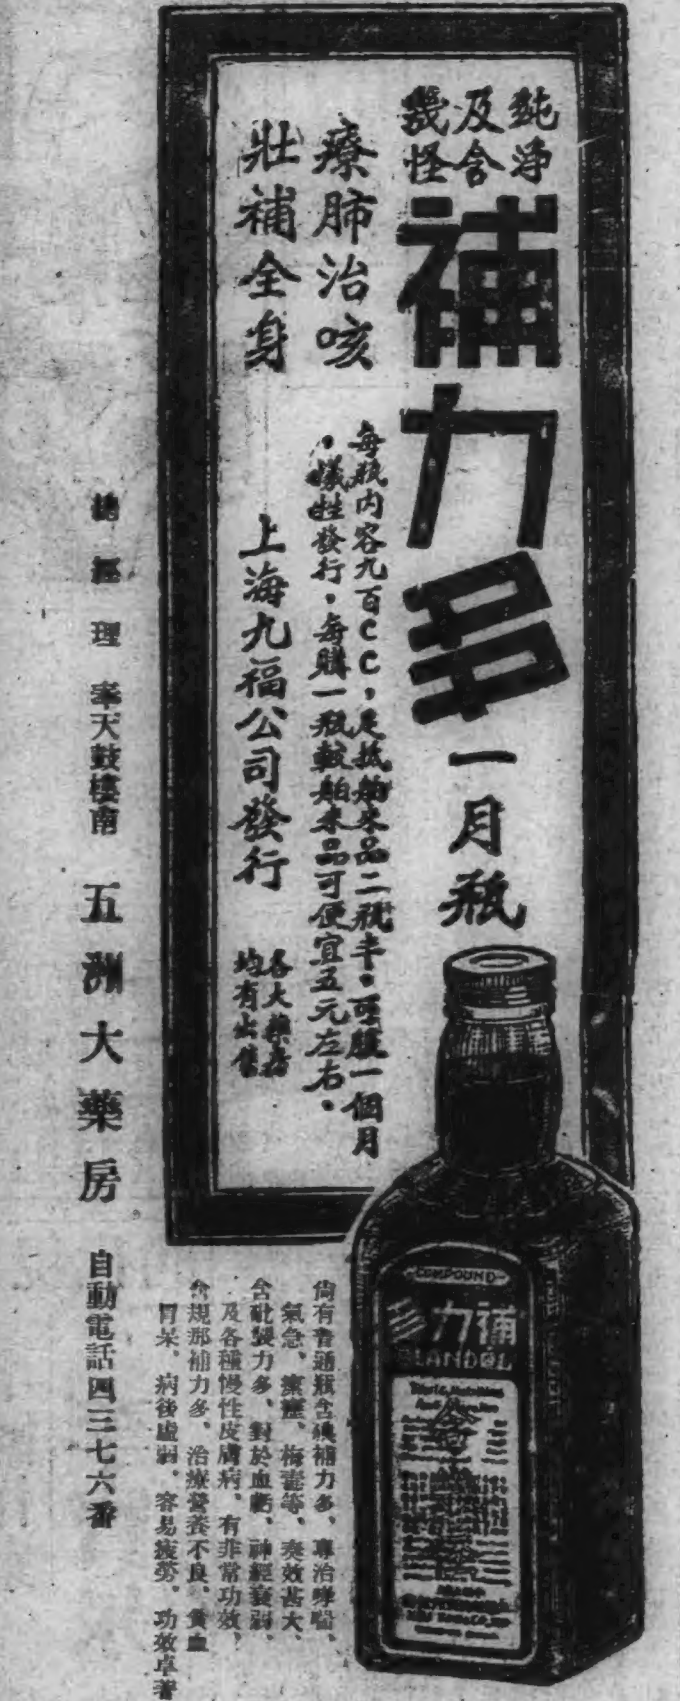 純淨
及含
幾怪
補力多一月瓶
療肺治咳
壯補全身
每瓶內容九百CC,足抵舶來品二瓶半。可服一個月
,犧牲發行。每購一瓶較舶來品可便宜五元左右。
上海九福公司發行
各大藥房
均有出售
COMPOUND
補力多
BLANDOL
尚有普通瓶含碘補力多、專治哮喘、
氣急、瘰癧、梅毒等、奏效甚大、
含砒製力多、對於血虧、神經衰弱、
及各種慢性皮膚病、有非常功效、
含規那補力多、治療營養不良、貧血
胃呆、病後虛弱、容易疲勞、功效卓著
總經理 奉天鼓樓南 五洲大藥房 自動電話四三七六番